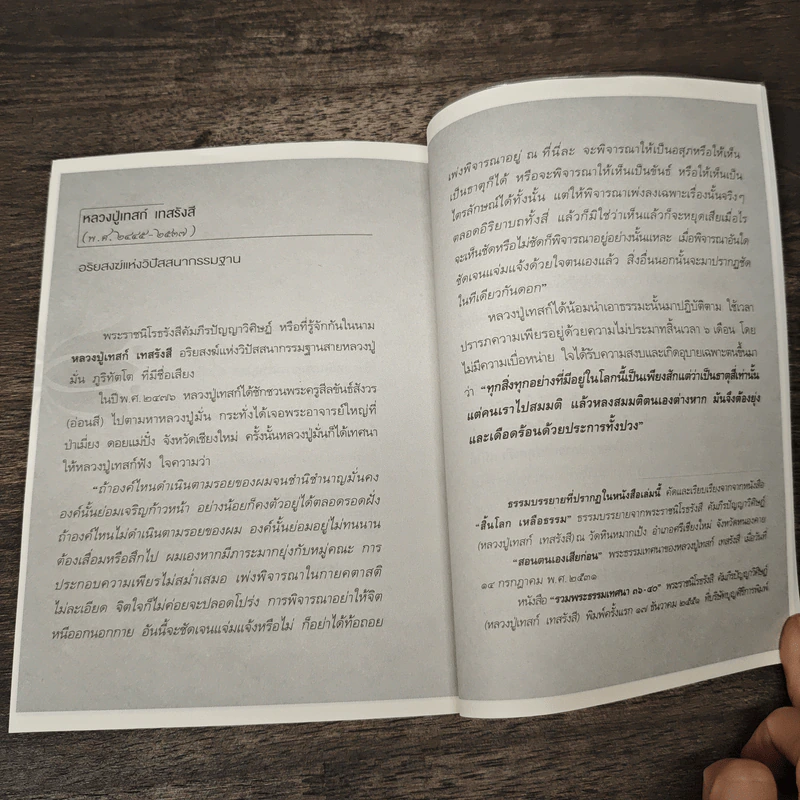 หลวงปู่เทสก์ เทสรังสี
(พ.ศ. ๒๔๔๕-๒๕๓๗)
อริยสงฆ์แห่งวิปัสสนากรรมฐาน
พระราชนิโรธรังสีคัมภีรปัญญาวิศิษฏ์ หรือที่รู้จักกันในนาม
หลวงปู่เทสก์ เทสรังสี อริยสงฆ์แห่งวิปัสสนากรรมฐานสายหลวงปู่
มั่น ภูริทัตโต ที่มีชื่อเสียง
ในปีพ.ศ.๒๔๗๖ หลวงปู่เทสก์ได้ชักชวนพระครูสีลขันธ์สังวร
(อ่อนสี) ไปตามหาหลวงปู่มั่น กระทั่งได้เจอพระอาจารย์ใหญ่ที่
ป่าเมี่ยง ดอยแม่ปั๋ง จังหวัดเชียงใหม่ ครั้งนั้นหลวงปู่มั่นก็ได้เทศนา
ให้หลวงปู่เทสก์ฟัง ใจความว่า
"ถ้าองค์ไหนดำเนินตามรอยของผมจนชำนิชำนาญมั่นคง
องค์นั้นย่อมเจริญก้าวหน้า อย่างน้อยก็คงตัวอยู่ได้ตลอดรอดฝั่ง
ถ้าองค์ไหนไม่ดำเนินตามรอยของผม องค์นั้นย่อมอยู่ไม่ทนนาน
ต้องเสื่อมหรือสึกไป ผมเองหากมีภาระมากยุ่งกับหมู่คณะ การ
ประกอบความเพียรไม่สม่ำเสมอ เพ่งพิจารณาในกายคตาสติ
ไม่ละเอียด จิตใจก็ไม่ค่อยจะปลอดโปร่ง การพิจารณาอย่าให้จิต
หนีออกนอกกาย อันนี้จะชัดเจนแจ่มแจ้งหรือไม่ ก็อย่าได้ท้อถอย
เพ่งพิจารณาอยู่ ณ ที่นี่ละ จะพิจารณาให้เป็นอสุภหรือให้เห็น
เป็นธาตุก็ได้ หรือจะพิจารณาให้เห็นเป็นขันธ์ หรือให้เห็นเป็น
ไตรลักษณ์ได้ทั้งนั้น แต่ให้พิจารณาเพ่งลงเฉพาะเรื่องนั้นจริงๆ
ตลอดอิริยาบถทั้งสี่ แล้วก็มิใช่ว่าเห็นแล้วก็จะหยุดเสียเมื่อไร
จะเห็นชัดหรือไม่ชัดก็พิจารณาอยู่อย่างนั้นแหละ เมื่อพิจารณาอันใด
ชัดเจนแจ่มแจ้งด้วยใจตนเองแล้ว สิ่งอื่นนอกนั้นจะมาปรากฏชัด
ในที่เดียวกันดอก"
หลวงปู่เทสก์ได้น้อมนำเอาธรรมะนั้นมาปฏิบัติตาม ใช้เวลา
ปรารภความเพียรอยู่ด้วยความไม่ประมาทสิ้นเวลา ๖ เดือน โดย
ไม่มีความเบื่อหน่าย ใจได้รับความสงบและเกิดอุบายเฉพาะตนขึ้นมา
ว่า "ทุกสิ่งทุกอย่างที่มีอยู่ในโลกนี้เป็นเพียงสักแต่ว่าเป็นธาตุสี่เท่านั้น
แต่คนเราไปสมมติ แล้วหลงสมมติตนเองต่างหาก มันจึงต้องยุ่ง
และเดือดร้อนด้วยประการทั้งปวง"
ธรรมบรรยายที่ปรากฏในหนังสือเล่มนี้ คัดและเรียบเรียงจากจากหนังสือ
"สิ้นโลก เหลือธรรม" ธรรมบรรยายจากพระราชนิโรธรังสี คัมภีรปัญญาวิศิษฏ์
(หลวงปู่เทสก์ เทสรังสี) ณ วัดหินหมากเป้ง อำเภอศรีเชียงใหม่ จังหวัดหนองคาย
"สอนตนเองเสียก่อน" พระธรรมเทศนาของหลวงปู่เทสก์ เทสรังสี เมื่อวันที่
๑๔ กรกฎาคม พ.ศ. ๒๕๓๑
หนังสือ "รวมพระธรรมเทศนา ๓๖-๔๐" พระราชนิโรธรังสี คัมภีรปัญญาวิศิษฏ์
(หลวงปู่เทสก์ เทสรังสี) พิมพ์ครั้งแรก ๑๗ ธันวาคม ๒๕๕๑ ที่บริษัทบุญศิริการพิมพ์